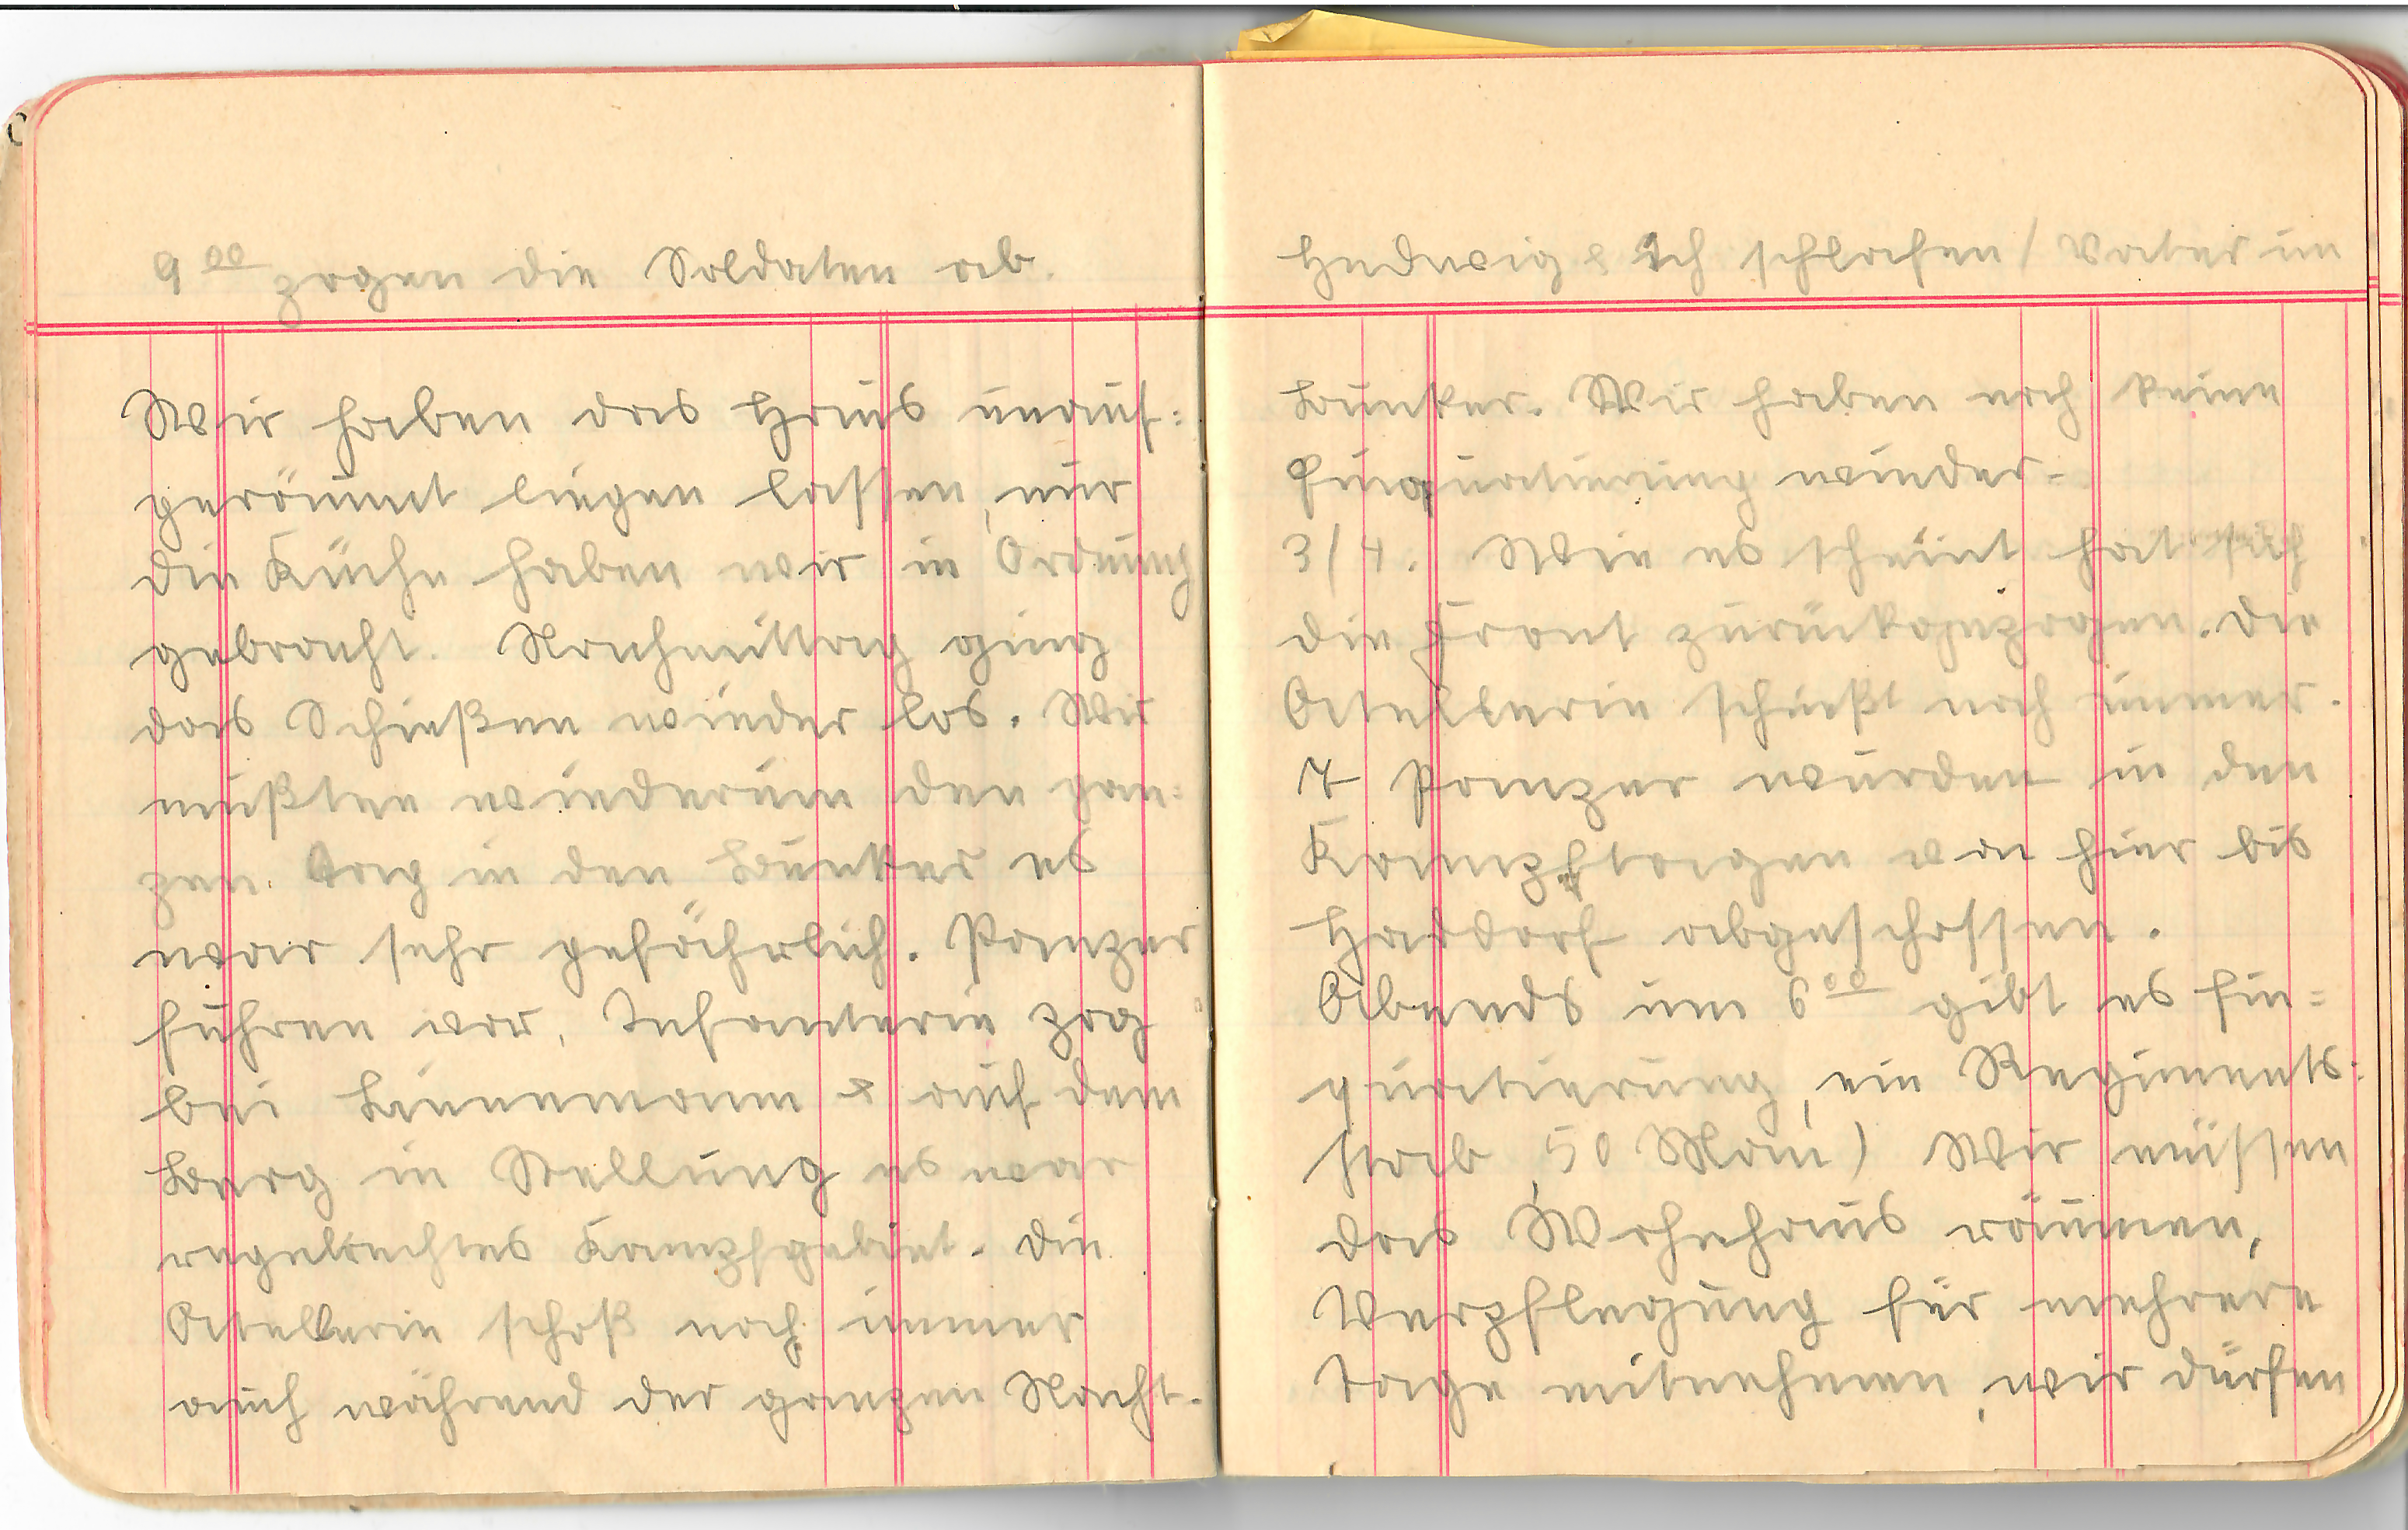 9 00 zogen die Soldaten ab.
Wir haben das Haus unauf=
geräumt liegen lassen, nur
die Küche haben wir in Ordnung
gebracht. Nachmittag ging
das Schießen wieder los. Wir
mußten wiederum den gan=
zen Tag in den Bunker es
war sehr gefährlich. Panzer
fuhren vor, Infanterie zog
bei Linnemann & auf dem
Berg in Stellung es war
regelrechtes Kampfgebiet. Die
Artellerie schoß noch immer
auch während der ganzen Nacht.
Hedwig & Ich schlafen / Vater im
Bunker. Wir haben noch keine
Einquartierung wieder.
3/4. Wie es scheint hat sich
die Front zurückgezogen. Die
Artellerie schießt noch immer.
7 Panzer wurden in den
Kampftagen von hier bis
Hardorf abgeschossen.
Abends um 6 00 gibt es Ein=
quartierung, ein Regiments=
stab, 50 Mann) Wir müssen
das Wohnhaus räumen,
Verpflegung für mehrere
Tage mitnehmen, wir dürfen